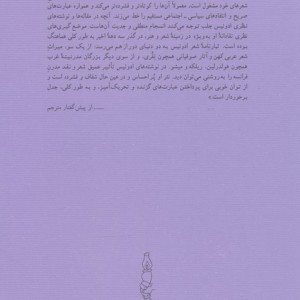 شعرهای خود مشغول است. معمولاً آن‌ها را کوتاه‌تر و فشرده‌تر می‌کند و همواره عبارت‌های
صریح و انتقادهای سیاسی ـ اجتماعی مستقیم را حذف می‌کند. آنچه در مقاله‌ها و نوشته‌های
نظری ادونیس جلب توجه می‌کند انسجام منطقی و جدیت آن‌هاست. موضع گیری‌های
نظری نقادانهٔ او به‌ویژه در زمینهٔ شعر و هنر، در گذر سه دههٔ اخیر به طور کلی هماهنگ
بوده است. تبارنامهٔ شعر ادونیس به دو دنیای دور از هم می‌رسد. از یک سو، میراث
شعر عربی کهن و آثار صوفیانی همچون نفّری، و از سوی دیگر بزرگان مدرنیتهٔ غرب
همچون هولدرلین، ریلکه و میشو. در نوشته‌های ادونیس تأثیر عمیق شعر و نقد مدرن
فرانسه را به‌روشنی می‌توان دید. نثر او پراحساس و در عین حال شفاف و فشرده است و
از توان خوبی برای پرداختن عبارت‌های گزنده و تحریک‌آمیز، و به طور کلی، جدل
برخوردار است.»
... از پیش‌گفتار مترجم